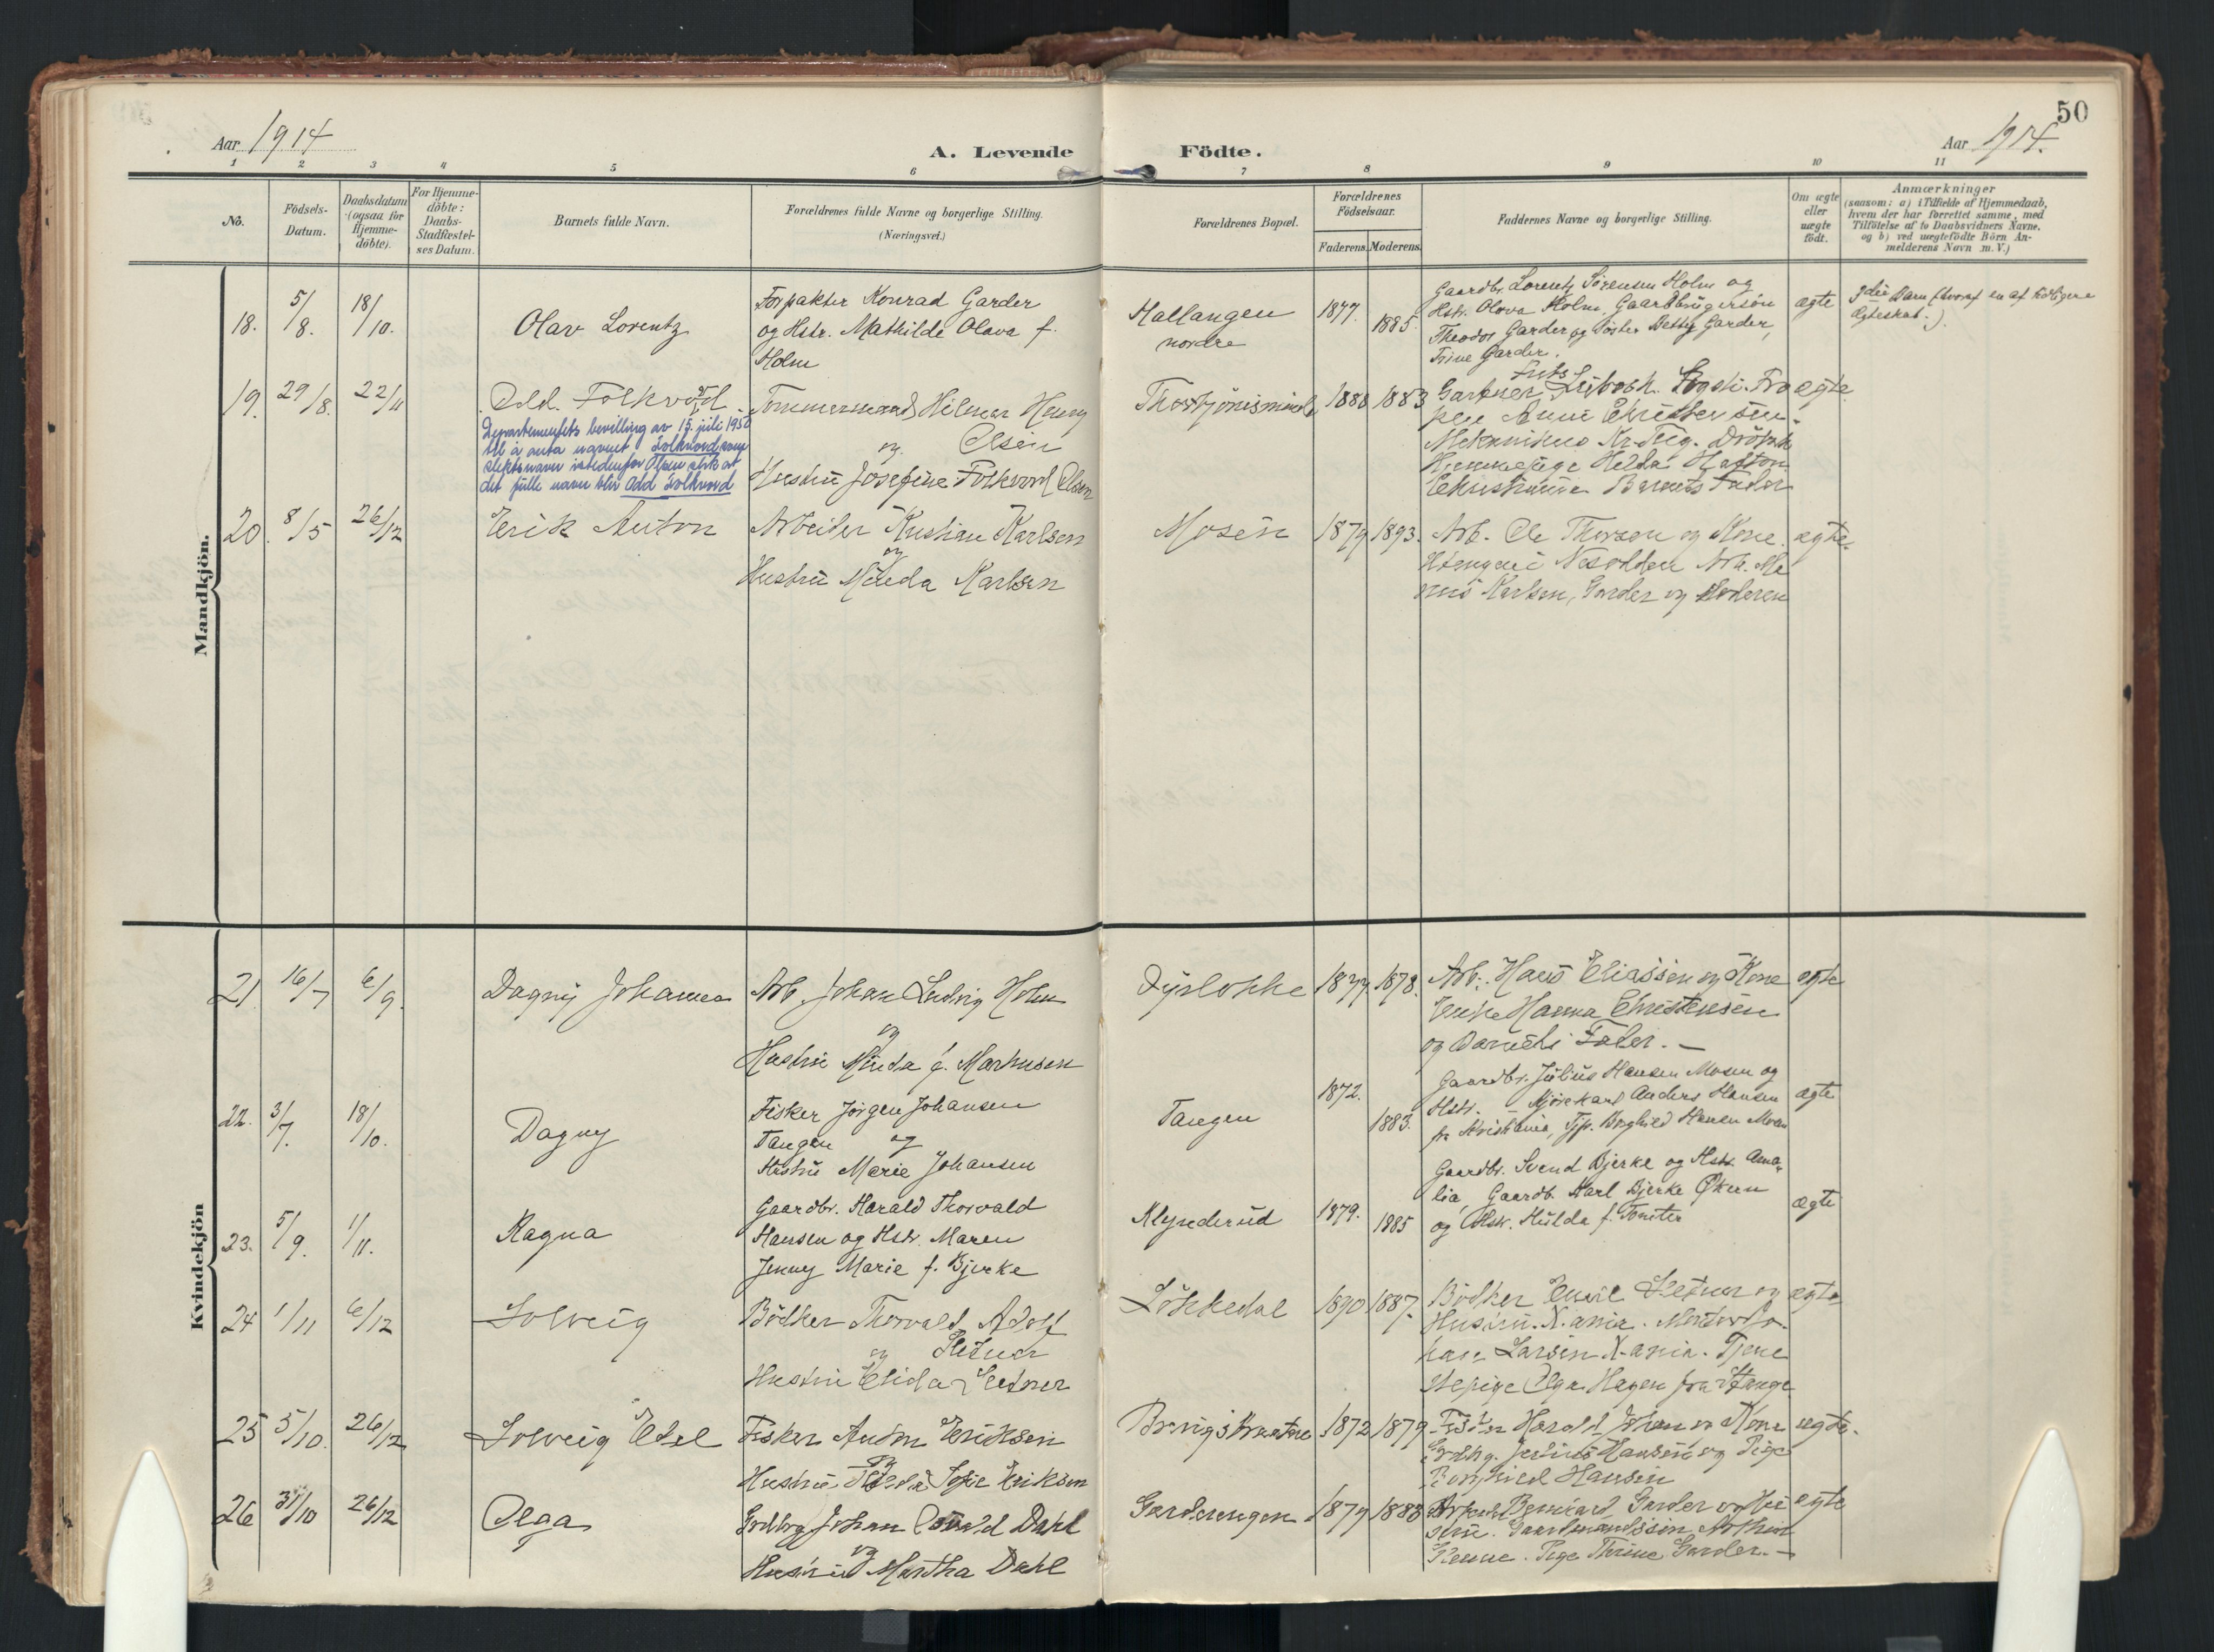 50
Aar 1914
A. Levende Födte.
Aar 1914.
1 2 3 4 5 6 7 8 9 10 11
No.
Födsels-
Datum.
Daabsdatum
(ogsaa for
Hjemme-
döbte).
For Hjemme-
döbte:
Daabs-
Stadfæstel-
ses Datum.
Barnets fulde Navn.
Forældrenes fulde Navne og borgerlige Stilling.
(Næringsvei.)
Forældrenes Bopæl.
Forældrenes
Födselsaar.
Faderens. Moderens.
Faddernes Navne og borgerlige Stilling.
Om ægte
eller
uægte
födt.
Anmærkninger
(saasom: a) i Tilfælde af Hjemmedaab,
hvem der har forrettet samme, med
Tilföielse af to Daabsvidners Navne,
og b) ved uægtefödte Börn An-
melderens Navn m. V.)
Mandkjön.
18. 5/8. 18/10.
Olav Lorentz
Forpakter Konrad Garder
og Hstr. Mathilde Olava f.
Holm
Hallangen
nordre
1877. 1885.
Gaardbr. Lorentz Sörensen Holm og
Hstr. Olova Holm, Gaardbrugersön
Theodor Garder og Söster Betty Garder,
Trine Garder.
ægte
3die Barn (hvoraf en af tidligere
Ægteskab.)
19. 29/8. 22/11
Odd. Folkvord.
Departementets bevilling av 15. juli 1950
til å anta navnet Folkvord som
slektsnavn istedenfor Olsen slik at
det fulle navn blir Odd Folkvord
Tømmermand Hilmar Henry
og Olsen
Hustru Josefine Folkvord Olsen
1888 1883
Gartner
Anni Christensen.
Mekanikus Dröbak
Christiania Barnets Fader
ægte
20. 8/5 26/12
Erik Anton
Arbeider Kristian Karlsen
og
Hustru Minda Karlsen
Mosen
1879 1893.
Arb. Ole Thorsen og Kone
Nesodden Arb. Mag
nus Karlsen, Garder og Moderen
ægte.
Kvindekjön
21. 16/7 6/9.
Dagny Johanna
Arb. Johan Ludvig Holm
og
Hustru Minda f. Markusen
Dyrlökke
1877. 1878.
Arb. Hans Eliassen og Kone
Enke Hanna Christensen
og Barnets Fader. –
ægte
22. 3/7. 18/10.
Dagny
Fisker Jörgen Johansen
Tangen og
Hustru Marie Johansen
Tangen
1872. 1883.
Gaardbr. Julius Hansen Mosen og
Hstr. – Kjörekarl Anders Hansen
fr Kristiania, Tjp. Borghild Hansen Mosen
ægte
23. 5/9. 1/11.
Ragna
Gaardbr. Harald Thorvald
Hansen og Hstr. Maren
Jenny Marie f. Bjerke
Klynderud
1879. 1885
Gaardbr. Svend Bjerke og Hstr. Ama-
lia, Gaardb. Karl Bjerke Økern
og Hstr. Hulda f. Tomter
ægte
24 1/11 6/12
Solveig
Bödker Thorvald Adolf
og Sletner
Hustru Elida Sletner
Lökkedal
1890 1887.
Bödker Emil Sletner og
Hustru. X.ania. Montör Jo-
han Larsen X-ania. Tjene
stepige Olga Hagen fra Stange
ægte
25 5/10. 26/12
Solveig Edel
Fisker Anton Eriksen
og
Hustru Sofie Eriksen
1872 1879
Fisker Harald Johansen Kone
Grdbrg. Julius Hansen og Pige
Borghild Hansen
ægte.
26 31/10 26/12
Olga
Grdbrg Johan Osvald Dahl
og
Hustru Martha Dahl
Garderengen
1879 1883
Bernhard Garder og Hu
stru. Gaardmandssön
Pige Thrine Garder. –
ægte